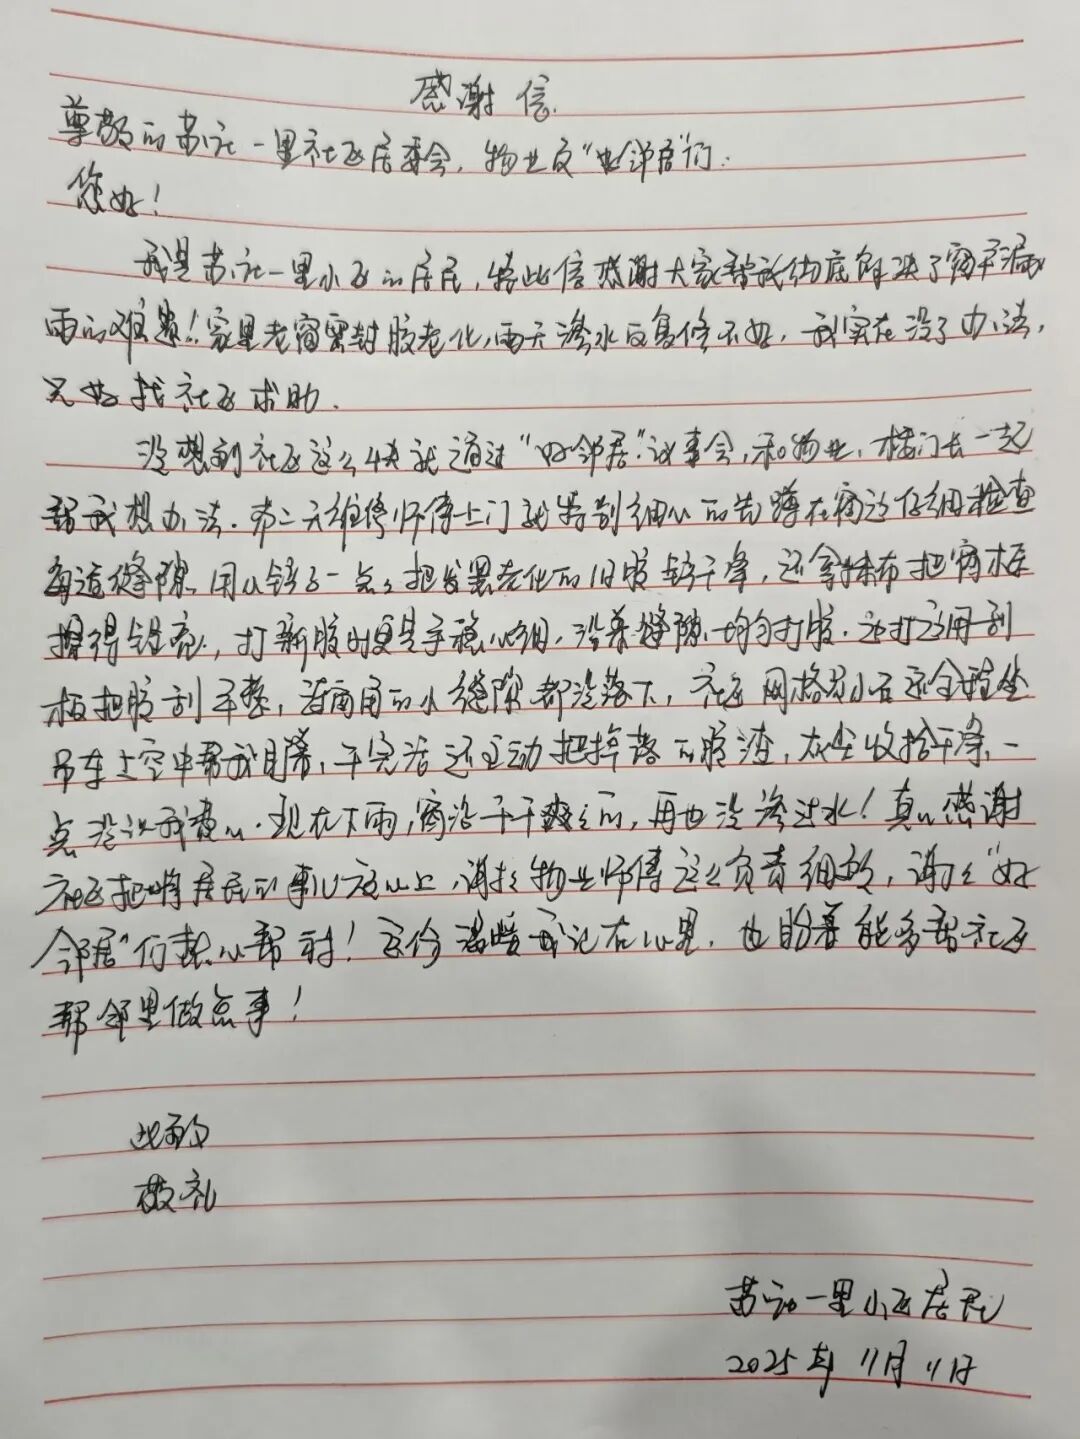 感谢信
尊敬的苏社一里社区居委会,物业及"好邻居"们:
您好!
我是苏社一里小区的居民,特此信感谢大家帮我彻底解决了窗户漏
雨的难题!家里老窗密封胶老化,雨天渗水反复修不好,我实在没了办法,
只好找社区求助.
没想到社区这么快就通过"好邻居"议事会,和物业,楼门长一起
帮我想办法.第二天维修师傅上门就特别细心的先蹲在窗边仔细检查
每道缝隙.用小铲子一点点把发黑老化的旧胶铲干净,还拿抹布把窗框
擦得锃亮,打新胶时更是手稳心细,沿着缝隙均匀打胶.边打边用刮
板把胶刮平整,连窗角的小缝隙都没落下,社区网格员小石还全程坐
吊车上空中帮我盯着,干完活还主动把掉落的胶渣,灰尘收拾干净,一
点没让我费心.现在下雨,窗沿干干爽爽的,再也没渗过水!真心感谢
社区把咱居民的事儿放心上,谢谢物业师傅这么负责细致,谢谢"好
邻居"们热心帮衬!这份温暖我记在心里,也盼着能多帮社区
帮邻里做点事!
此致
敬礼
一里小区居民
2025年11月11日